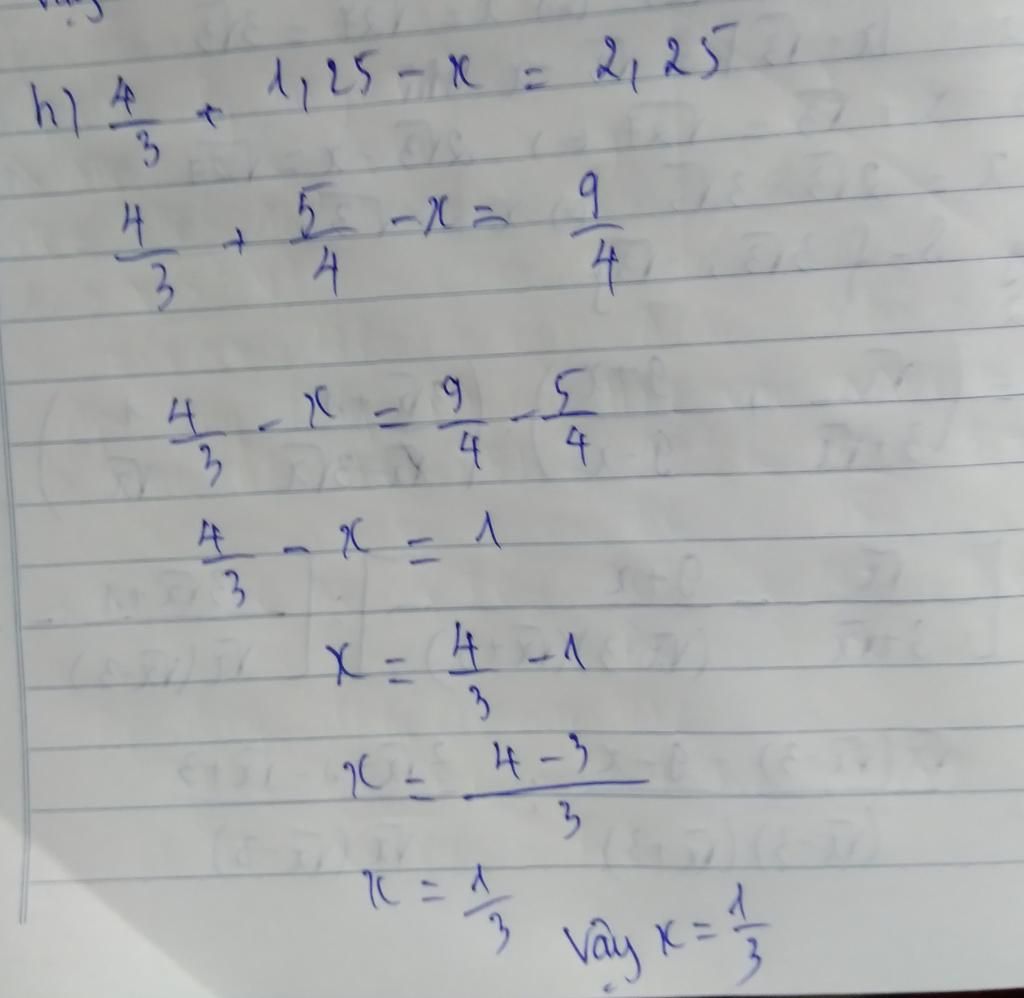 h) 4/3 + 1,25 - x = 2,25
4/3 + 5/4 - x = 9/4
4/3 - x = 9/4 - 5/4
4/3 - x = 1
x = 4/3 - 1
x = (4 - 3)/3
x = 1/3 Vậy x = 1/3